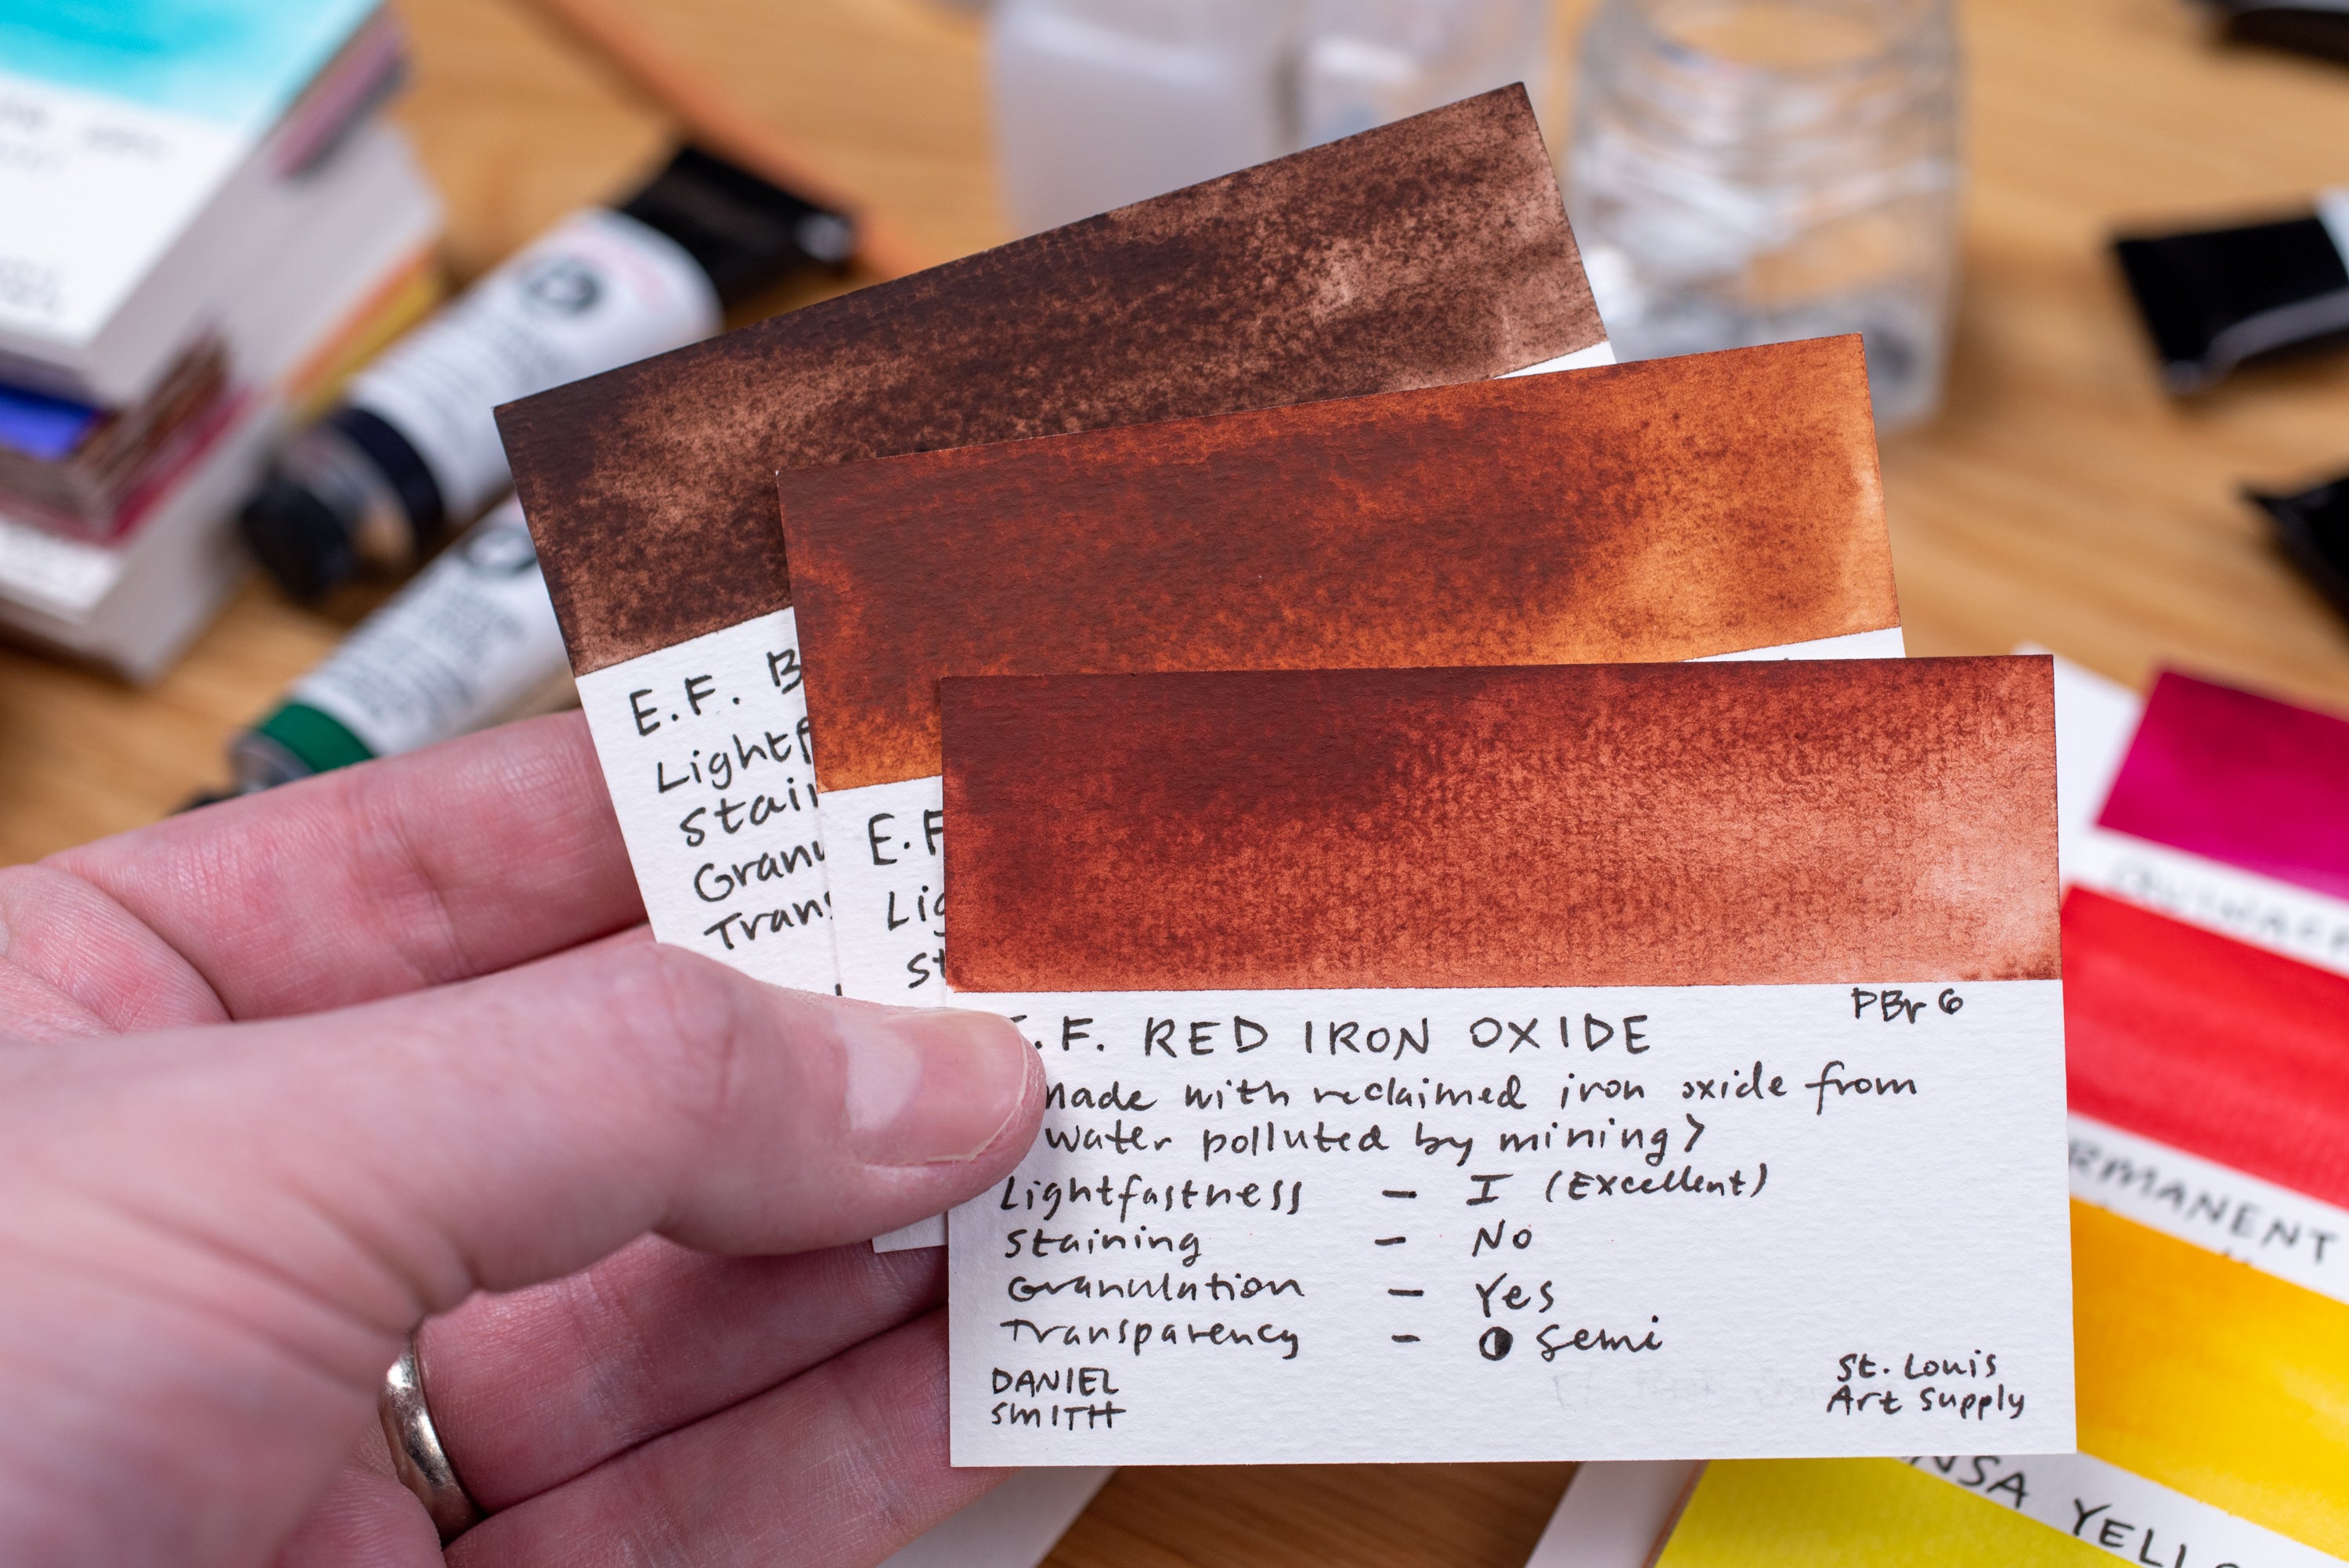 E.F. B
Lightf
Stai
Granu
Trans
E.F
Lig
St
PBr 6
.F. RED IRON OXIDE
made with reclaimed iron oxide from
water polluted by mining>
Lightfastness - I (Excellent)
Staining - No
Granulation - Yes
Transparency - ◑ Semi
DANIEL
SMITH
St. Louis
Art Supply
QUINAC
RMANENT
NSA YELLO